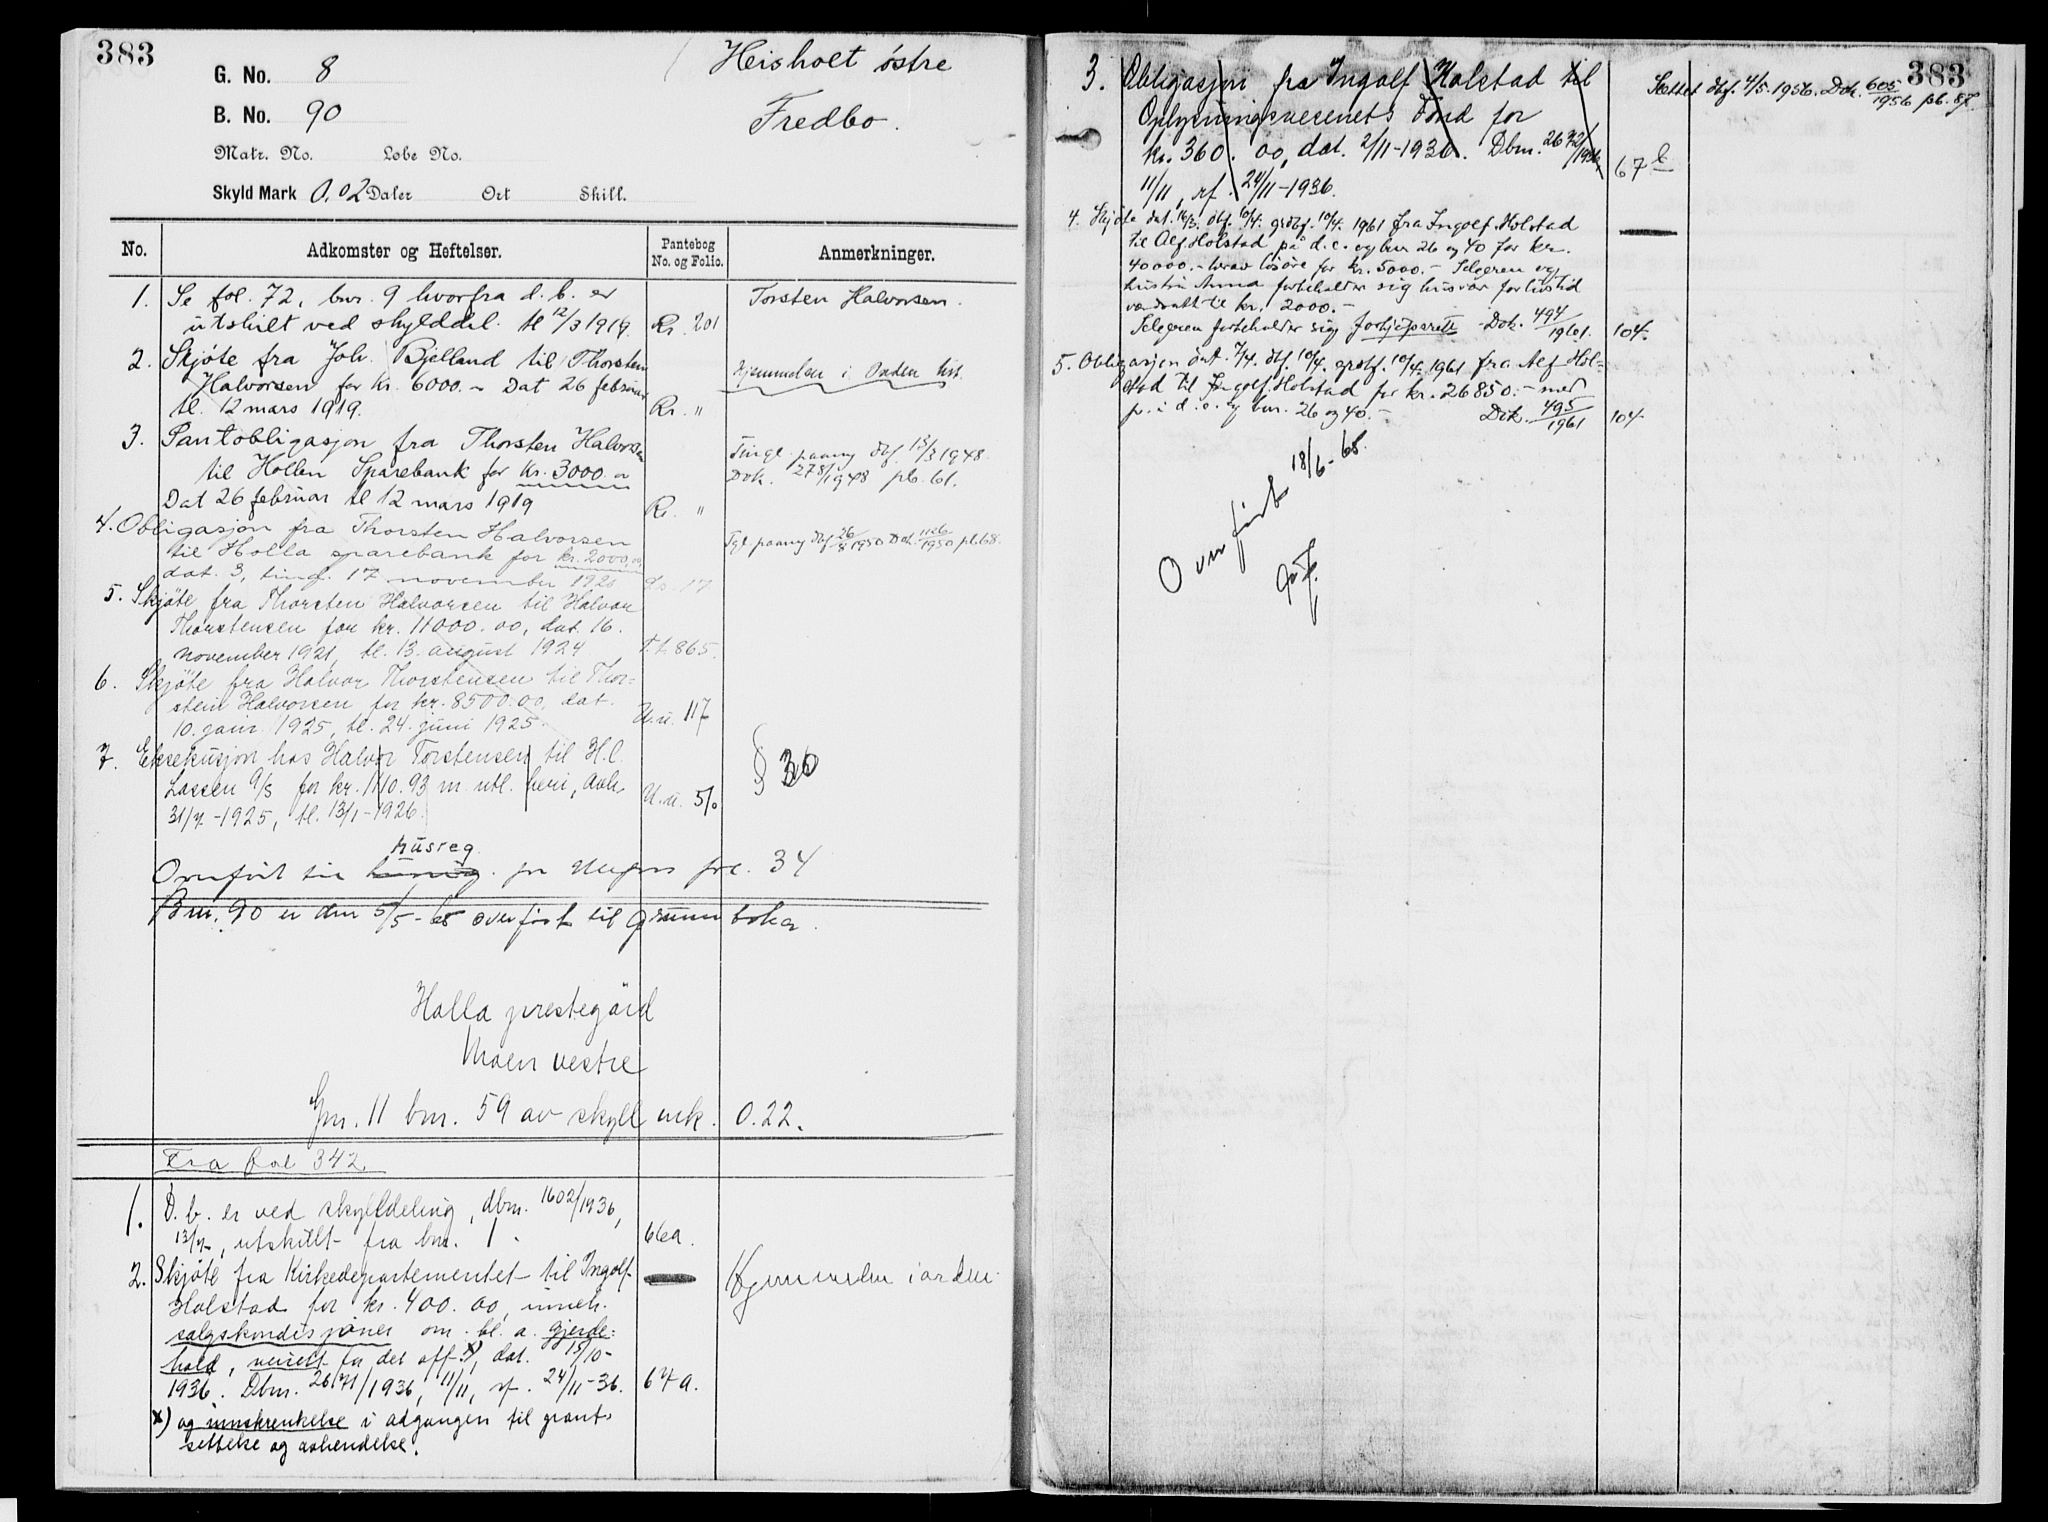 383
G. No. 8
Heisholt østre
B. No. 90
Fredbo.
Matr. No. Løbe No.
Skyld Mark 0,02 Daler Ort Skill.
No. Adkomster og Heftelser. Pantebog No. og Folio. Anmerkninger.
1. Se fol. 72, bnr. 9 hvorfra d. b. er
utskilt ved skylddel. tl 12/3 1919. Rr. 201
Torsten Halvorsen.
2. Skjøte fra Joh. Bjelland til Thorsten
Halvorsen for Kr. 6000.- Dat 26 februar
tl. 12 mars 1919. Rr. "
Hjemmelen i Orden
3. Pantobligasjon fra Thorsten Halvorsen
til Hollen Sparebank for Kr. 3000.-
Dat 26 februar tl 12 mars 1919 Rr. "
Tingl. paany dbf 13/3 1948
Dok. 278/1948 pb. 61.
4. Obligasjon fra Thorsten Halvorsen
til Holla sparebank for kr. 2000,00,
dat. 3, tingl. 17 november 1920 17
Tgl. paany dbf 26/8 1950 Dok. 1126/1950 pb. 68.
5. Skjøte fra Thorsten Halvorsen til Halvor
Thorstensen for kr. 11000.00, dat. 16.
november 1921, tl. 13. august 1924 T.t. 865.
6. Skjøte fra Halvor Thorstensen til Thor-
stein Halvorsen for kr. 8500.00, dat.
10. juni 1925, tl. 24. juni 1925. U.u. 117
7. Eksekusjon hos Halvor Torstensen til H.C.
Lassen A/S for kr. 1110.93 m. utl. heri, avh.
31/7-1925, tl. 13/1-1926. U.u. 510
§ 36
husreg.
Overført til pr fol. 34
Bnr. 90 er den 5/5-65 overført til grunnboka.
Holla prestegård
Moen vestre
Gnr. 11 bnr. 59 av skyld mk. 0.22.
Fra fol 342.
1. D. b. er ved skylddeling, dbnr. 1602/1936,
13/7, utskilt fra bnr. 1. 66a.
2. Skjøte fra Kirkedepartementet til Ingolf
Holstad for kr. 400.00, inneh.
salgskondisjoner om bl. a. gjerde-
hold, veirett for det off. x), dat. 15/10-
1936. Dbnr. 2671/1936, 11/11, rf. 24/11-36. 67a.
Hjemmelen i orden.
x) og innskrenkelse i adgangen til pant-
settelse og avhendelse.
383
3. Obligasjon fra Ingolf Holstad til
Oplysningsvesenets Fond for
kr. 360.00, dat. 2/11-1936. Dbnr. 2672/1936,
11/11, rf. 24/11-1936. 67b
Slettet dbf. 4/5 1956. Dok. 605/1956 pb. 87.
4. Skjøte dat. 16/3. dbf. 10/4. grdbf. 10/4. 1961 fra Ingolf Holstad
til Alf Holstad på d.e. og bnr 26 og 40 for kr.
40000.- herav løsøre for kr. 5000.- Selgeren og
hustru Anna forbeholder sig husvær for livstid
verdsatt til kr. 2000.-
Selgeren forbeholder sig forkjøpsrett Dok. 494/1961. 104.
5. Obligasjon dat. 7/4. dbf. 10/4. grdbf. 10/4. 1961 fra Alf Hol-
stad til Ingolf Holstad for kr. 26850.- med
p. i d.e. og bnr. 26 og 40.- Dok. 495/1961 104
Overført 18/6-65.